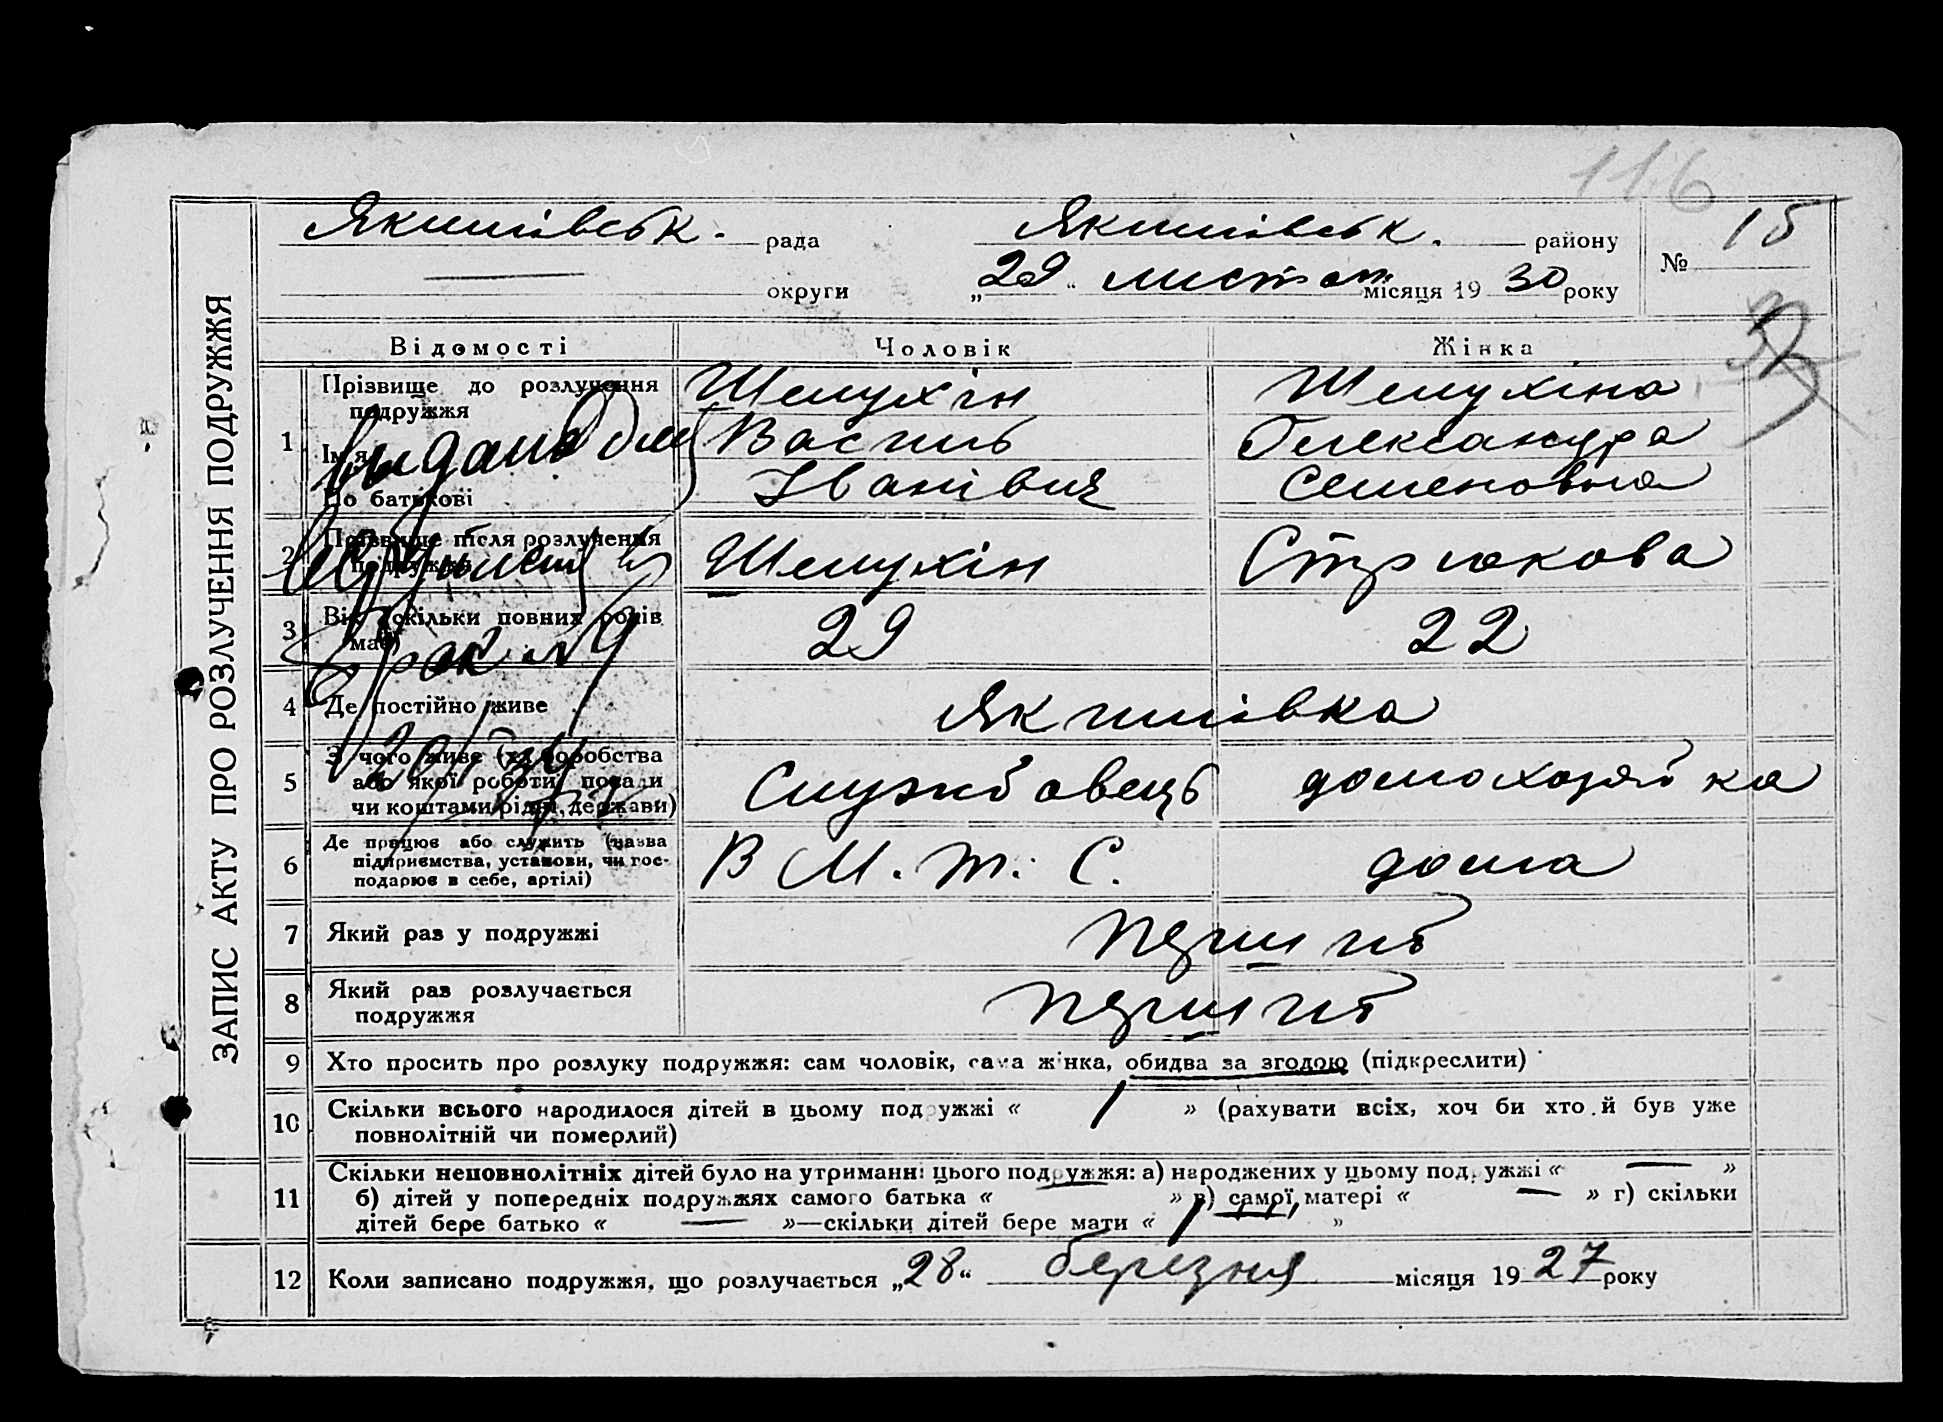 116
Якимівськ. рада Якимівськ. району № 15
округи „29" листоп. місяця 1930 року
ЗАПИС АКТУ ПРО РОЗЛУЧЕННЯ ПОДРУЖЖЯ
Відомості Чоловік Жінка
1 Прізвище до розлучення подружжя Шелухін Шелухіна
Ім'я Василь Олександра
По батькові Іванівич Семеновна
Видано
2 Прізвище після розлучення подружжя Шелухін Стрюкова
3 Вік (скільки повних років має) 29 22
4 Де постійно живе Якимівка
5 З чого живе (хліборобства або якої роботи, посади чи коштами рідні, держави) Службовець домохозяйка
6 Де працює або служить (назва
підприємства, установи, чи гос-
подарює в себе, артілі) В М. Т. С. дома
7 Який раз у подружжі перший
8 Який раз розлучається
подружжя перший
9 Хто просить про розлуку подружжя: сам чоловік, сама жінка, обидва за згодою (підкреслити)
10 Скільки всього народилося дітей в цьому подружжі « / » (рахувати всіх, хоч би хто й був уже
повнолітній чи померлий)
11 Скільки неповнолітніх дітей було на утриманні цього подружжя: а) народжених у цьому подружжі « — »
б) дітей у попередніх подружжях самого батька « » в) самої матері « — » г) скільки
дітей бере батько « — »—скільки дітей бере мати « / »
12 Коли записано подружжя, що розлучається „28" березня місяця 1927 року